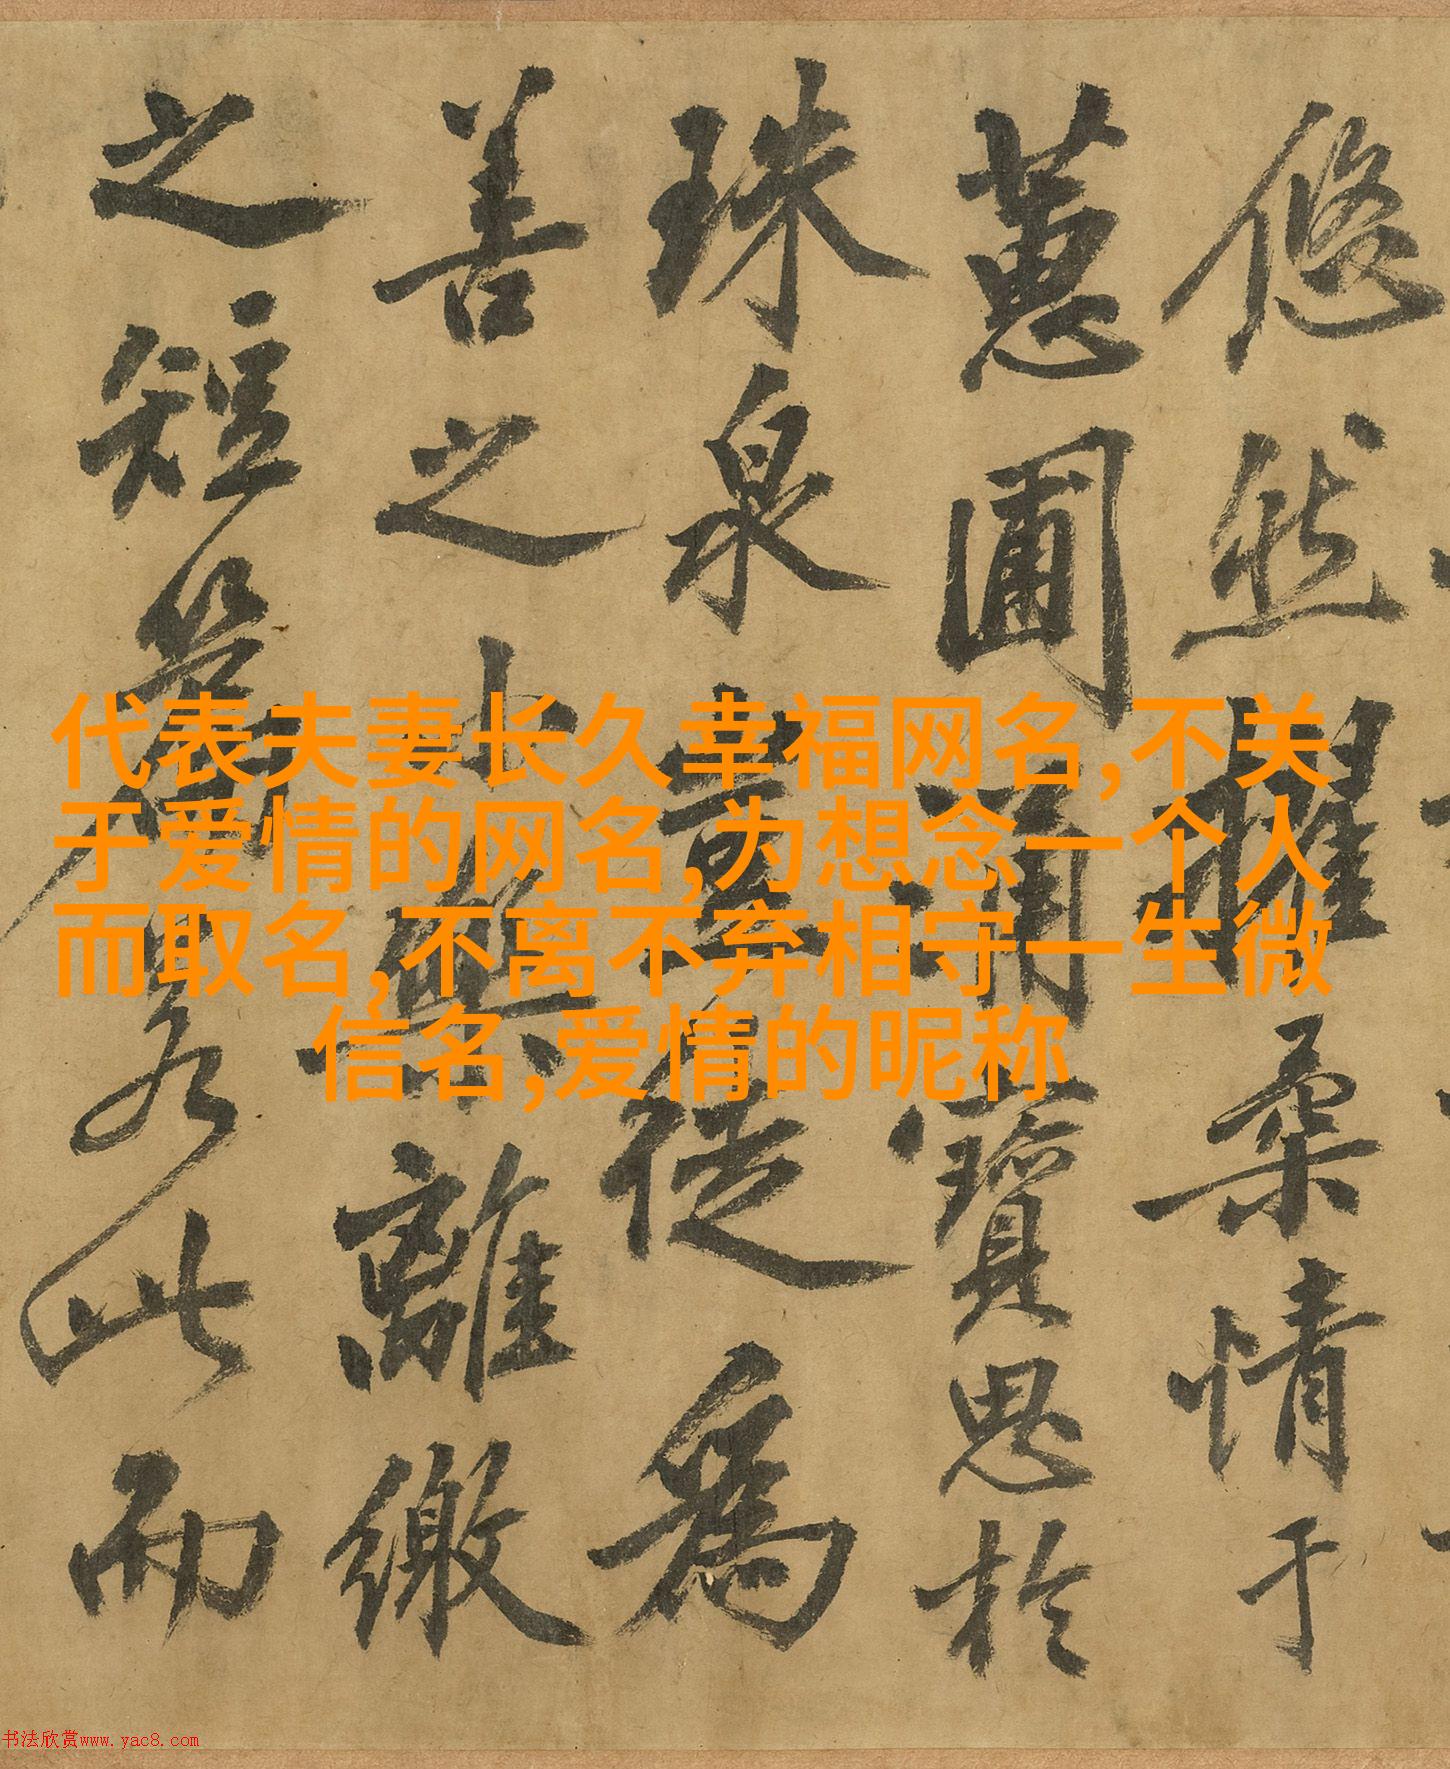 悠然柔情于
蕙圃涌寶思於
珠泉豈徒為
善之離繳
之短若此而
代表夫妻长久幸福网名,不关
于爱情的网名,为想念一个人
而取名,不离不弃相守一生微
信名,爱情的昵称
书法欣赏www.yac8.com